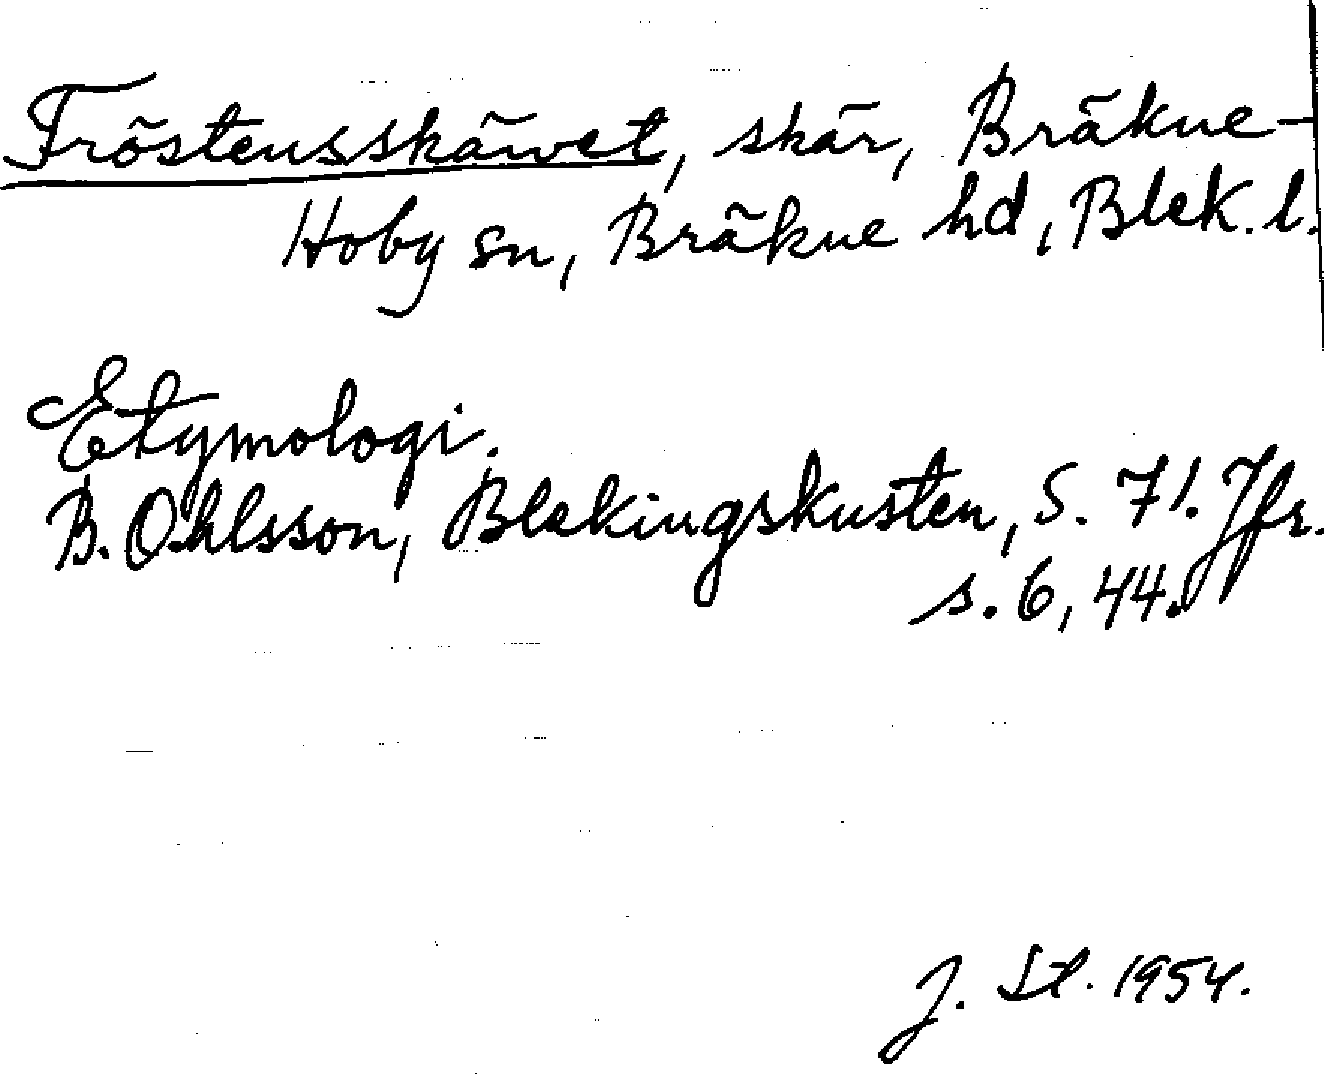 Fröstensskäret, skär, Bräkne-
Hoby sn, Bräkne hd, Blek. l.
Etymologi.
B. Ohlsson, Blekingskusten, s. 71. Jfr.
s. 6, 44.
J. St. 1954.